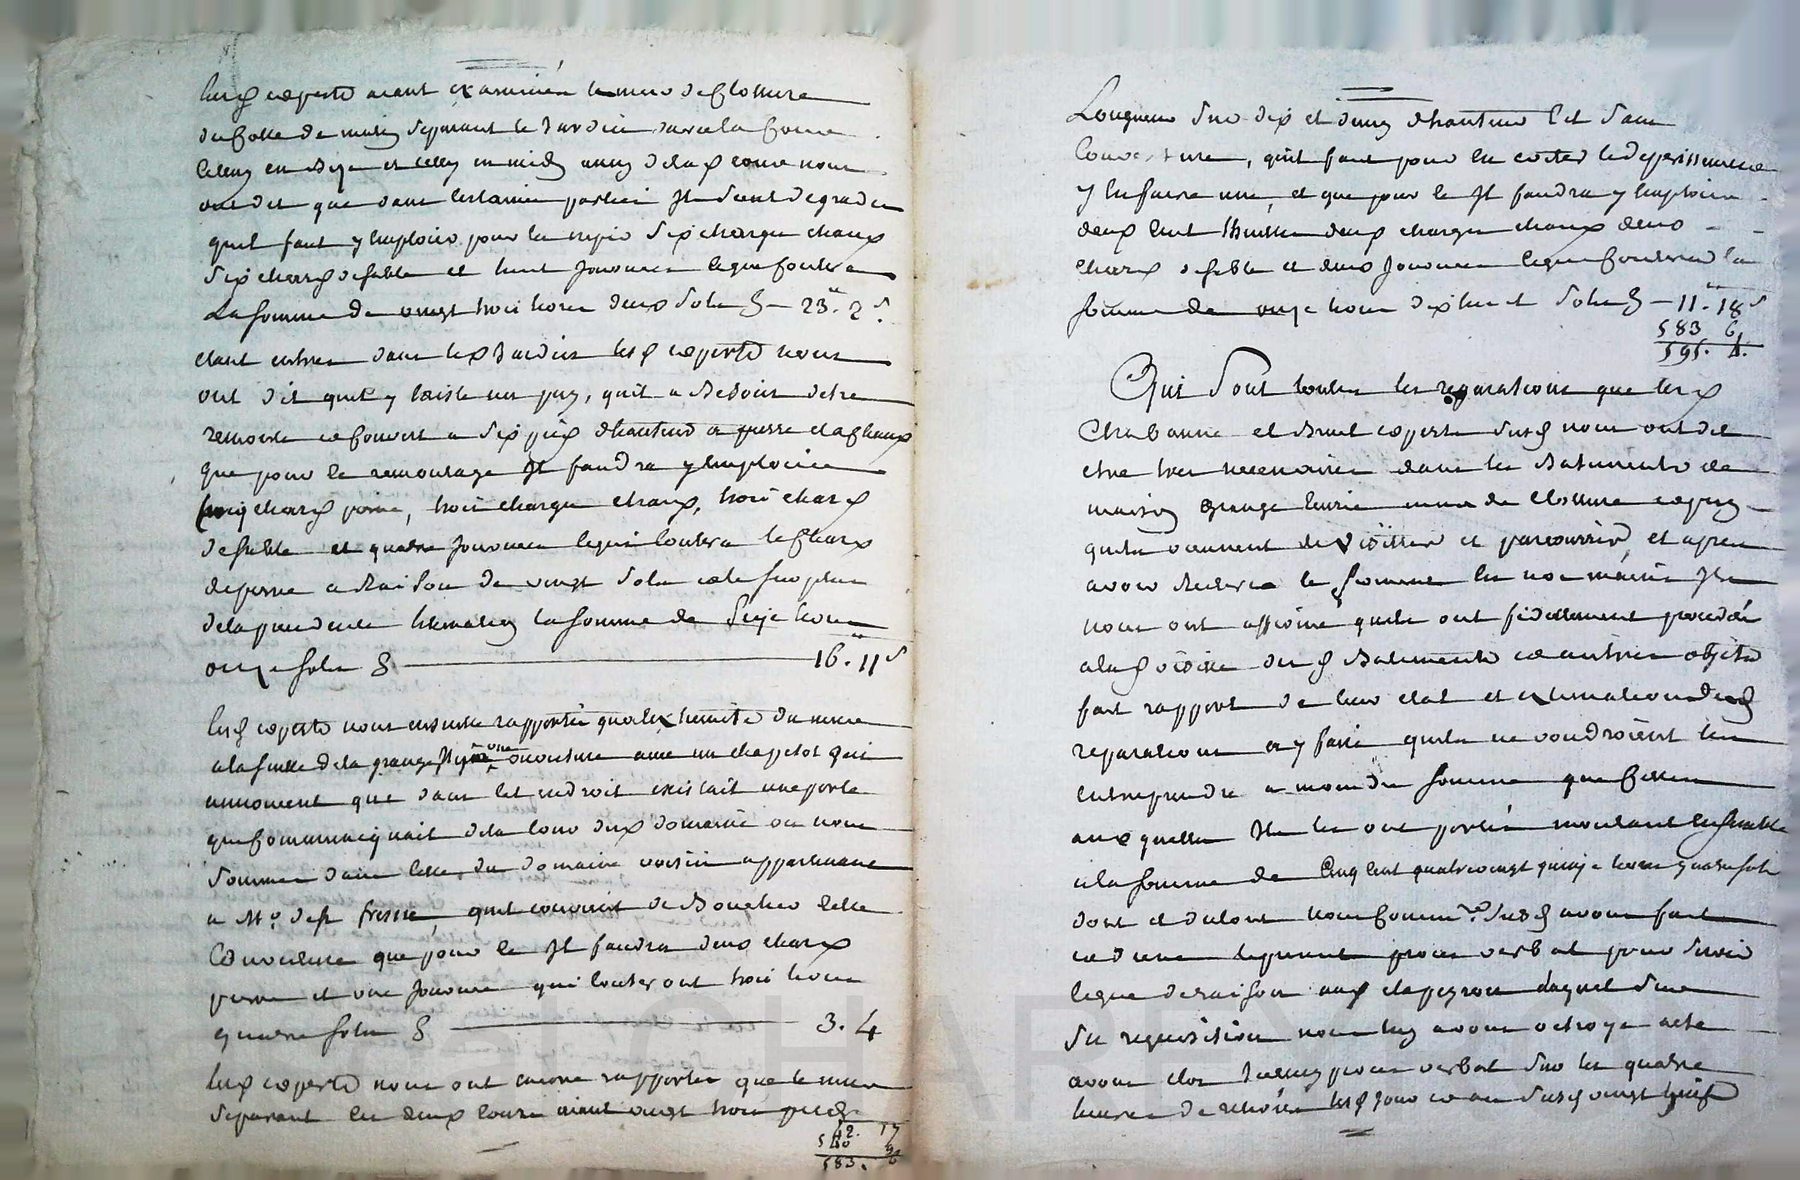 lesd experts aiant examinés le mur de closture
du costé de matin separant le jardin davec la cour
celluy en bize et celluy en midy aussy de lad cour nous
ont dit que dans certaines parties Ils sont degradés
quil faut y emploier pour les repic six charges chaux
six chard de sable et huit journées ce que coutera
La somme de vingt trois livres deux sols cy - 23.ll 2s.
etant entrés dans led Jardin lesd experts nous
ont dit quil y existe un puy, quil a Besoin detre
remonté et couvert a six pieds dhauteur a pierre et a chaux
que pour le remontage Il faudra y emploier
cinq chard pierre, trois charges chaux, trois chard
de sable et quatre journées ce qui coutera le chard
de pierre a Raison de vingt sols et le surplus
de la precedente Estimation la somme de Seize livres
onze sols cy 16.ll 11s
lesd experts nous ensuite rapportés qua lextremité du mur
a la suitte de la grange Il y a une ouverture avec un chapeiot qui
annoncent que dans cet endroit existait une porte
que communiquait de la cour dud domaine ou nous
sommes dans celle du domaine voisin appartenant
a Mr. de fressié, quil convient de Boucher cette
Couverture que pour ce Il faudra deux chard
pierre et une journée qui couteront trois livres
quatre sols cy 3. 4
lesd experts nous ont encore rapportés que le mur
separant les deux cours aiant vingt trois pieds
42. 17
540 9
583. 6
Longueur sur dix et demy dhauteur Est sans
Couverture, quil faut pour en eviter le deperissement
y en faire une, et que pour ce Il faudra y emploier
deux cent thuilles deux charges chaux deux
chard de sable et deux journées ce que coutera la
somme de onze livres dix huit sols cy - 11.ll 18s
583 6
595. 4.
Qui sont toutes les reparations que lesd
Chabanne et Bruel experts susd nous ont dit
etre tres necessaires dans les Batiments de
maison grange Ecurie mur de closture et puy
quils viennent de visitter et parcourrir, et apres
avoir Redigé le sommaire en nos mains Ils
nous ont affirmé quils ont fidellement procedés
a lad visitte desd Batiments et autres objets
fait rapport de leur etat et estimation desd
reparations a y faire quils ne voudroient les
entreprendre a moindre somme que celles
aux quelles Ils les ont portés montant Ensemble
a la somme de Cinq cent quatre vingt quinze livres quatre sols
dont et du tout nous Commre. susd avons fait
et dressé le present procès verbal pour servir
ce que de raison aud clapeyron duquel sur
sa requisition nous luy avons octroyé acte
avons clos Icelluy procès verbal sur les quatre
heures de relevée lesd jour et an susd vingt huit